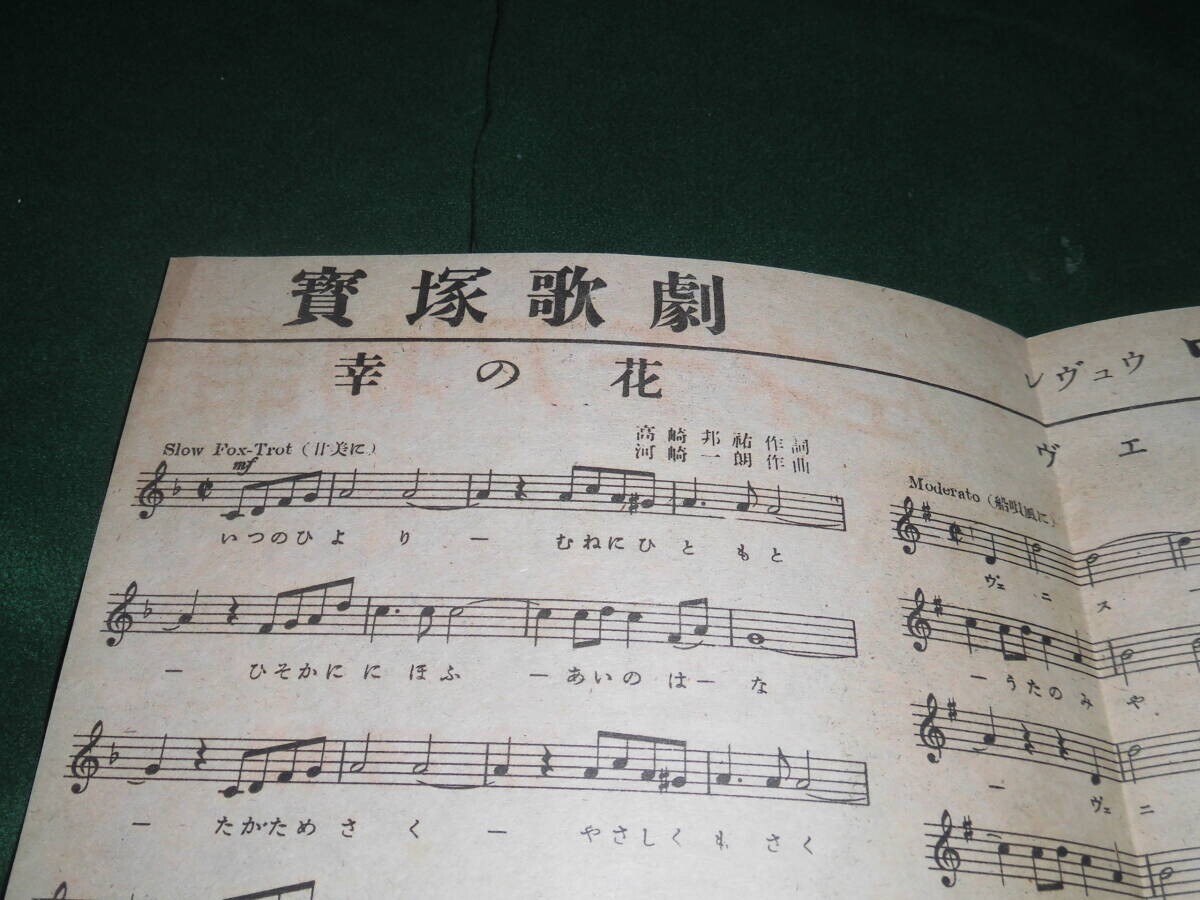 寳塚歌劇
幸の花
高崎邦祐作詞
河崎一朗作曲
Slow Fox-Trot (甘美に)
mf
いつのひより ー むねにひともと
ー ひそかににほふ ーあいのはーな
ー たがためさく ー やさしくもさく
レヴュウ
ヴエ
Moderato (船唄風に)
ヴェニスー
ーうたのみや
ー ヴェニ